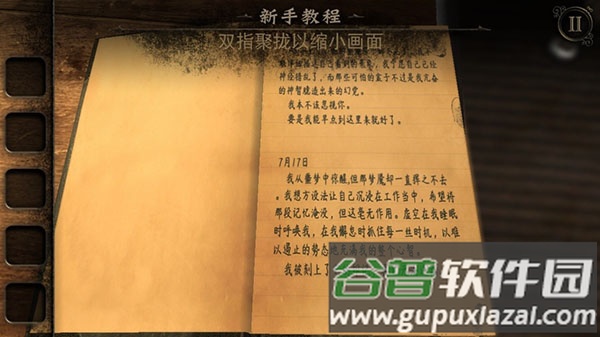 新手教程
双指聚拢以缩小画面
II
神经错乱了,而那些可怕的案子不过是我亢奋
的神智臆造出来的幻觉。
我本不该忽视你。
要是我能早点到这里来就好了。
7月17日
我从噩梦中惊醒,但那梦魇却一直挥之不去
。我想方设法让自己沉浸在工作当中,希望将
那段记忆淹没,但这是无作用。虚空在我睡眠
时呼唤我,在我懈怠时抓住每一丝时机,以难
以遏止的势态地充满我的整个心智。
我被刻上了
谷普软件园
www.gupuxlazal.com